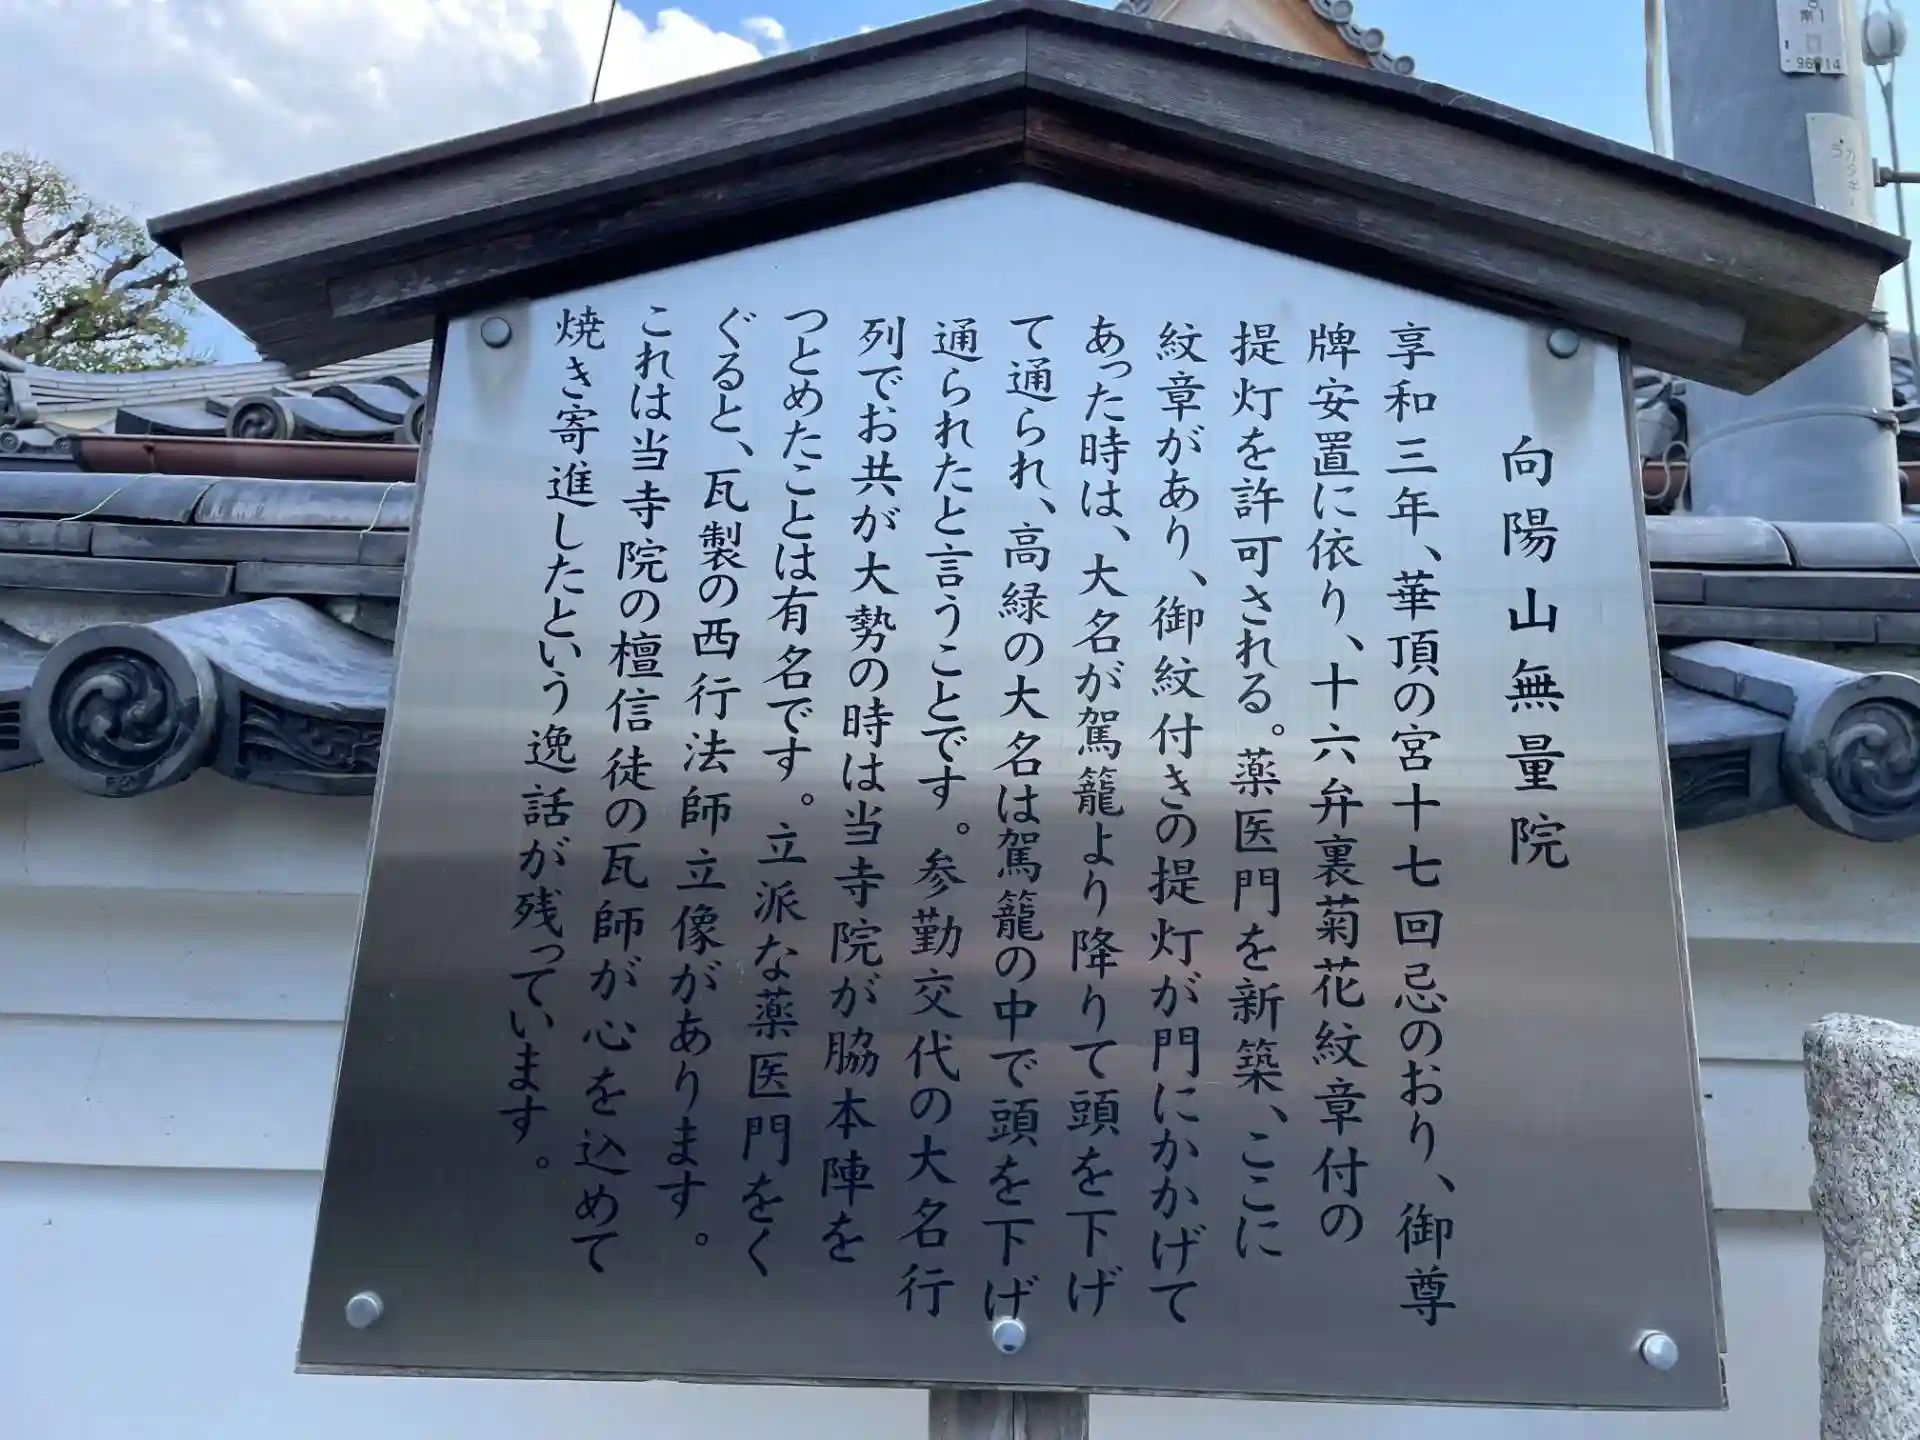 向陽山無量院
享和三年、華頂の宮十七回忌のおり、御尊
牌安置に依り、十六弁裏菊花紋章付の
提灯を許可される。薬医門を新築、ここに
紋章があり、御紋付きの提灯が門にかかげて
あった時は、大名が駕籠より降りて頭を下げ
て通られ、高緑の大名は駕籠の中で頭を下げ
通られたと言うことです。参勤交代の大名行
列でお共が大勢の時は当寺院が脇本陣を
つとめたことは有名です。立派な薬医門をく
ぐると、瓦製の西行法師立像があります。
これは当寺院の檀信徒の瓦師が心を込めて
焼き寄進したという逸話が残っています。
南1
96
14